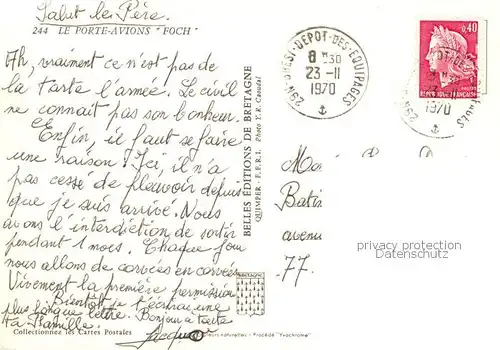 Salut le Père.
244 LE PORTE-AVIONS "FOCH"
Ah, vraiment ce n'est pas de
la tarte l'armée. Le civil
ne connait pas son bonheur.
Enfin, il faut se faire
une raison. Ici, il n'a
pas cessé de pleuvoir depuis
que je suis arrivé. Nous
avons l'interdiction de sortir
pendant 1 mois. Chaque jour
nous allons de corvées en corvées
Vivement la première permission
Bientôt je t'écrirai une
plus longue lettre. Bonjour à toute
ta famille.
Jacques
Collectionnez les Cartes Postales
BELLES ÉDITIONS DE BRETAGNE
QUIMPER - F.E.R.I. Photo
BRETAGNE
Couleurs naturelles - Procédé "Yvochrome"
29N BREST-DEPOT-DES-EQUIPAGES
8 H30
23-11
1970
0,40
REPUBLIQUE FRANCAISE
1970
Mo
Batim
avenu
77.
privacy protection
Datenschutz